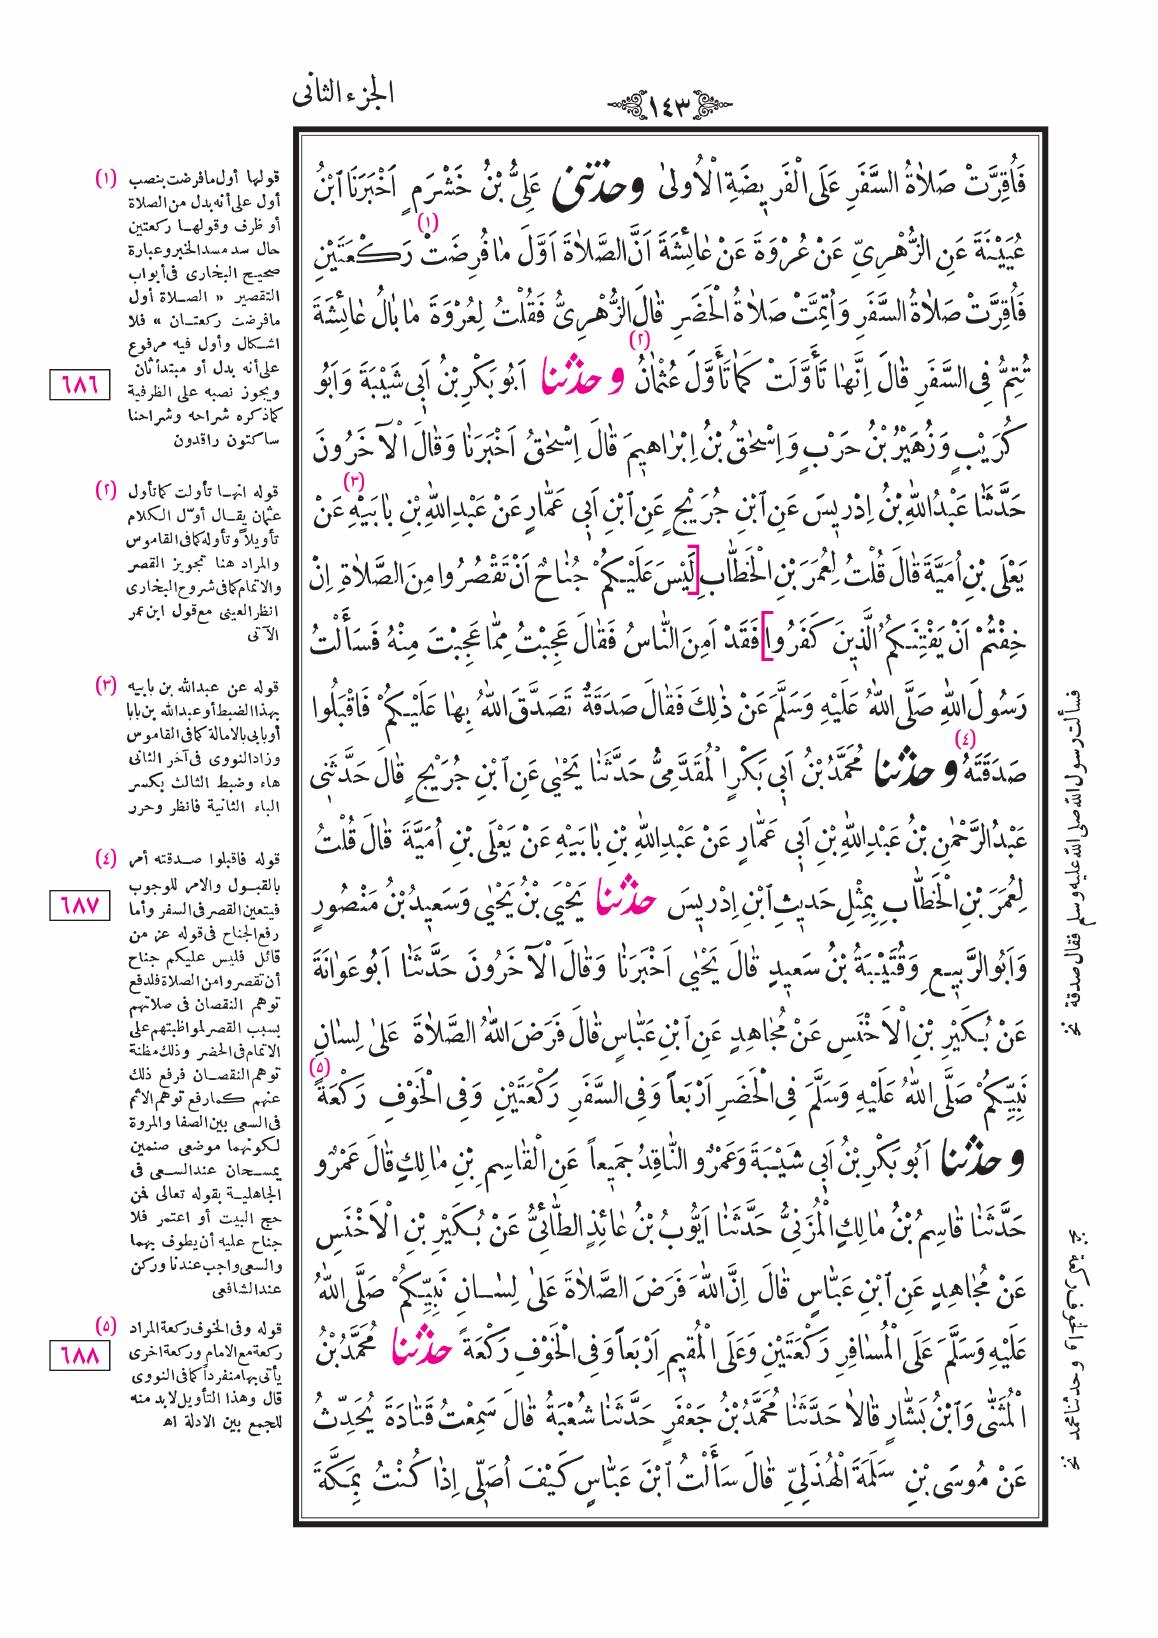 الجزء الثانى
١٤٣
فَأُقِرَّتْ صَلَاةُ السَّفَرِ عَلَى الْفَرِيضَةِ الْأُولَى وحَدَّثَنِي عَلِيُّ بْنُ خَشْرَمٍ أَخْبَرَنَا ابْنُ
عُيَيْنَةَ عَنِ الزُّهْرِيِّ عَنْ عُرْوَةَ عَنْ عَائِشَةَ أَنَّ الصَّلَاةَ أَوَّلَ مَا فُرِضَتْ (١) رَكْعَتَيْنِ
فَأُقِرَّتْ صَلَاةُ السَّفَرِ وَأُتِمَّتْ صَلَاةُ الْحَضَرِ قَالَ الزُّهْرِيُّ فَقُلْتُ لِعُرْوَةَ مَا بَالُ عَائِشَةَ
تُتِمُّ فِي السَّفَرِ قَالَ إِنَّهَا تَأَوَّلَتْ كَمَا تَأَوَّلَ عُثْمَانُ (٢) وحَدَّثَنَا أَبُو بَكْرِ بْنُ أَبِي شَيْبَةَ وَأَبُو
كُرَيْبٍ وَزُهَيْرُ بْنُ حَرْبٍ وَإِسْحَاقُ بْنُ إِبْرَاهِيمَ قَالَ إِسْحَاقُ أَخْبَرَنَا وَقَالَ الْآخَرُونَ
حَدَّثَنَا عَبْدُ اللَّهِ بْنُ إِدْرِيسَ عَنِ ابْنِ جُرَيْجٍ عَنِ ابْنِ أَبِي عَمَّارٍ عَنْ عَبْدِ اللَّهِ بْنِ بَابَيْهِ (٣) عَنْ
يَعْلَى بْنِ أُمَيَّةَ قَالَ قُلْتُ لِعُمَرَ بْنِ الْخَطَّابِ [لَيْسَ عَلَيْكُمْ جُنَاحٌ أَنْ تَقْصُرُوا مِنَ الصَّلَاةِ إِنْ
خِفْتُمْ أَنْ يَفْتِنَكُمُ الَّذِينَ كَفَرُوا] فَقَدْ أَمِنَ النَّاسُ فَقَالَ عَجِبْتُ مِمَّا عَجِبْتَ مِنْهُ فَسَأَلْتُ
رَسُولَ اللَّهِ صَلَّى اللَّهُ عَلَيْهِ وَسَلَّمَ عَنْ ذَلِكَ فَقَالَ صَدَقَةٌ تَصَدَّقَ اللَّهُ بِهَا عَلَيْكُمْ فَاقْبَلُوا
صَدَقَتَهُ (٤) وحَدَّثَنَا مُحَمَّدُ بْنُ أَبِي بَكْرٍ الْمُقَدَّمِيُّ حَدَّثَنَا يَحْيَى عَنِ ابْنِ جُرَيْجٍ قَالَ حَدَّثَنِي
عَبْدُ الرَّحْمَنِ بْنُ عَبْدِ اللَّهِ بْنِ أَبِي عَمَّارٍ عَنْ عَبْدِ اللَّهِ بْنِ بَابَيْهِ عَنْ يَعْلَى بْنِ أُمَيَّةَ قَالَ قُلْتُ
لِعُمَرَ بْنِ الْخَطَّابِ بِمِثْلِ حَدِيثِ ابْنِ إِدْرِيسَ حَدَّثَنَا يَحْيَى بْنُ يَحْيَى وَسَعِيدُ بْنُ مَنْصُورٍ
وَأَبُو الرَّبِيعِ وَقُتَيْبَةُ بْنُ سَعِيدٍ قَالَ يَحْيَى أَخْبَرَنَا وَقَالَ الْآخَرُونَ حَدَّثَنَا أَبُو عَوَانَةَ
عَنْ بُكَيْرِ بْنِ الْأَخْنَسِ عَنْ مُجَاهِدٍ عَنِ ابْنِ عَبَّاسٍ قَالَ فَرَضَ اللَّهُ الصَّلَاةَ عَلَى لِسَانِ
نَبِيِّكُمْ صَلَّى اللَّهُ عَلَيْهِ وَسَلَّمَ فِي الْحَضَرِ أَرْبَعاً وَفِي السَّفَرِ رَكْعَتَيْنِ وَفِي الْخَوْفِ رَكْعَةً (٥)
وحَدَّثَنَا أَبُو بَكْرِ بْنُ أَبِي شَيْبَةَ وَعَمْرٌو النَّاقِدُ جَمِيعاً عَنِ الْقَاسِمِ بْنِ مَالِكٍ قَالَ عَمْرٌو
حَدَّثَنَا قَاسِمُ بْنُ مَالِكٍ الْمُزَنِيُّ حَدَّثَنَا أَيُّوبُ بْنُ عَائِذٍ الطَّائِيُّ عَنْ بُكَيْرِ بْنِ الْأَخْنَسِ
عَنْ مُجَاهِدٍ عَنِ ابْنِ عَبَّاسٍ قَالَ إِنَّ اللَّهَ فَرَضَ الصَّلَاةَ عَلَى لِسَانِ نَبِيِّكُمْ صَلَّى اللَّهُ
عَلَيْهِ وَسَلَّمَ عَلَى الْمُسَافِرِ رَكْعَتَيْنِ وَعَلَى الْمُقِيمِ أَرْبَعاً وَفِي الْخَوْفِ رَكْعَةً حَدَّثَنَا مُحَمَّدُ بْنُ
الْمُثَنَّى وَابْنُ بَشَّارٍ قَالَا حَدَّثَنَا مُحَمَّدُ بْنُ جَعْفَرٍ حَدَّثَنَا شُعْبَةُ قَالَ سَمِعْتُ قَتَادَةَ يُحَدِّثُ
عَنْ مُوسَى بْنِ سَلَمَةَ الْهُذَلِيِّ قَالَ سَأَلْتُ ابْنَ عَبَّاسٍ كَيْفَ أُصَلِّي إِذَا كُنْتُ بِمَكَّةَ
فسألت رسول الله صلى الله عليه وسلم فقال صدقة نخ
وفي الخوف ركعة نخ
وحدثنا محمد نخ
(١) قولها أول ما فرضت بنصب
أول على أنه بدل من الصلاة
أو ظرف وقولهـا ركعتين
حال سد مسد الخبر وعبارة
صحيح البخارى فى أبواب
التقصير « الصـلاة أول
ما فرضت ركعتـان » فلا
اشكال وأول فيه مرفوع
على أنه بدل أو مبتدأ ثان
ويجوز نصبه على الظرفية
كما ذكره شراحه وشراحنا
ساكتون راقدون
٦٨٦
(٢) قوله انهـا تأولت كما تأول
عثمان يقـال أوّل الكلام
تأويلاً وتأوله كما فى القاموس
والمراد هنا تجويز القصر
والاتمام كما فى شروح البخارى
انظر العينى مع قول ابن عمر
الآتى
(٣) قوله عن عبدالله بن بابيه
بهذا الضبط أو عبدالله بن بابا
أو بابى بالامالة كما فى القاموس
وزاد النووى فى آخر الثانى
هاء وضبط الثالث بكسر
الباء الثانية فانظر وحرر
(٤) قوله فاقبلوا صـدقته أمر
بالقبـول والامر للوجوب
فيتعين القصر فى السفر وأما
رفع الجناح فى قوله عز من
قائل فليس عليكم جناح
أن تقصروا من الصلاة فلدفع
توهم النقصان فى صلاتهم
بسبب القصر لمواظبتهم على
الاتمام فى الحضر وذلك مظنة
توهم النقصـان فرفع ذلك
عنهم كـما رفع توهم الاثم
فى السعى بين الصفا والمروة
لـكونهما موضعى صنمين
يمسـحان عند السـعى فى
الجاهليـة بقوله تعالى فمن
حج البيت أو اعتمر فلا
جناح عليه أن يطوف بهما
والسعى واجب عندنا وركن
عند الشافعى
٦٨٧
(٥) قوله وفى الخوف ركعة المراد
ركعة مع الامام وركعة اخرى
يأتى بها منفرداً كما فى النووى
قال وهذا التأويل لابد منه
للجمع بين الادلة اهـ
٦٨٨